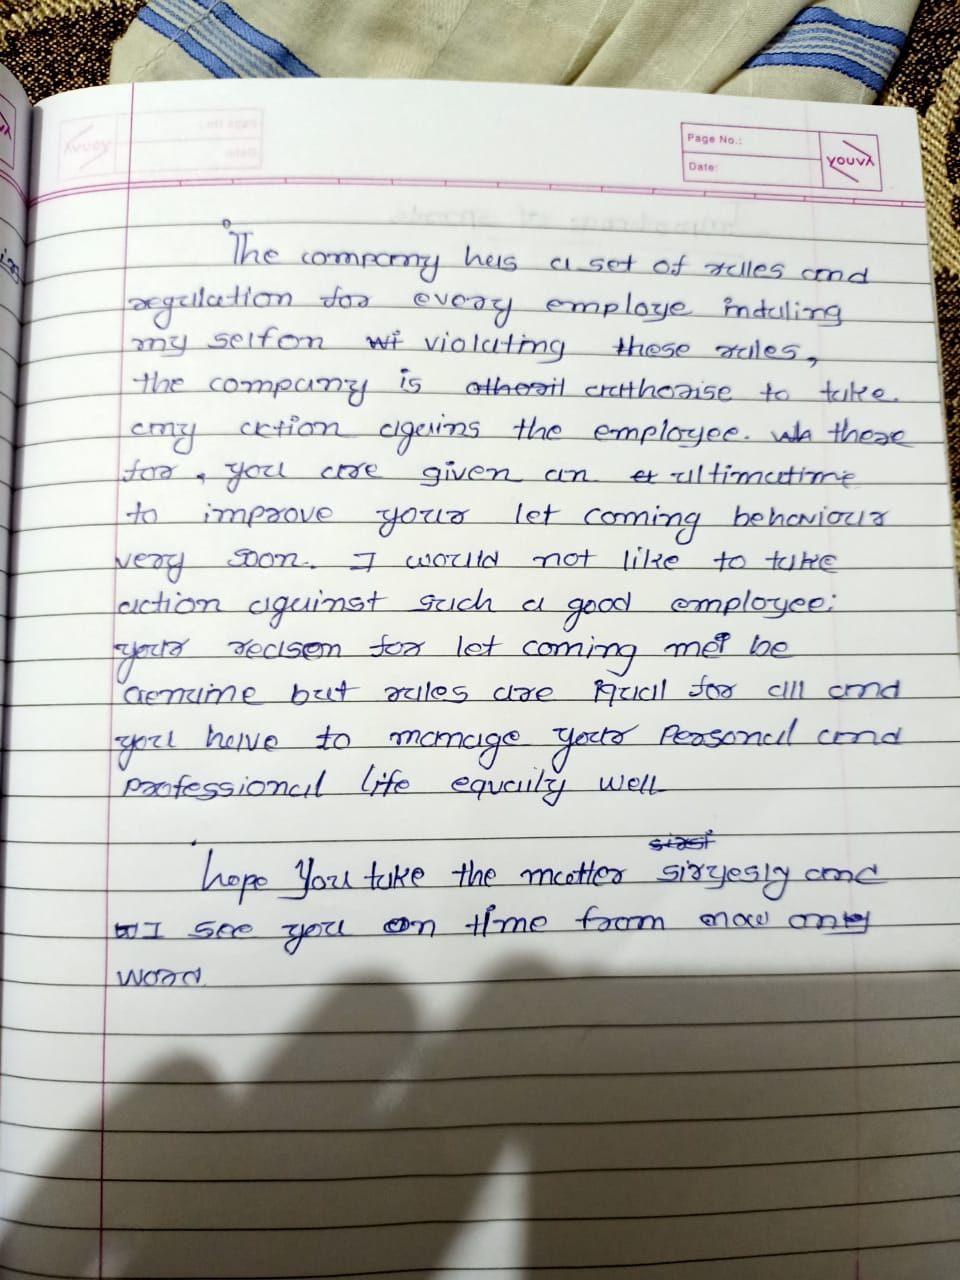 Page No.:
Date:
YOUVA
The company has a set of rules and
regulation for every employe induling
my selfon violating these rules,
the company is authorise to take.
any action agains the employee. there
for, you are given an ultimatime
to improve your let coming behaviour
very soon. I would not like to take
action against such a good employee:
your recisen for let coming met be
Genuine but rules are for all and
you have to manage your Personal and
professional life equaily well
hope you take the matter siryesly and
I see you on time from now on
word